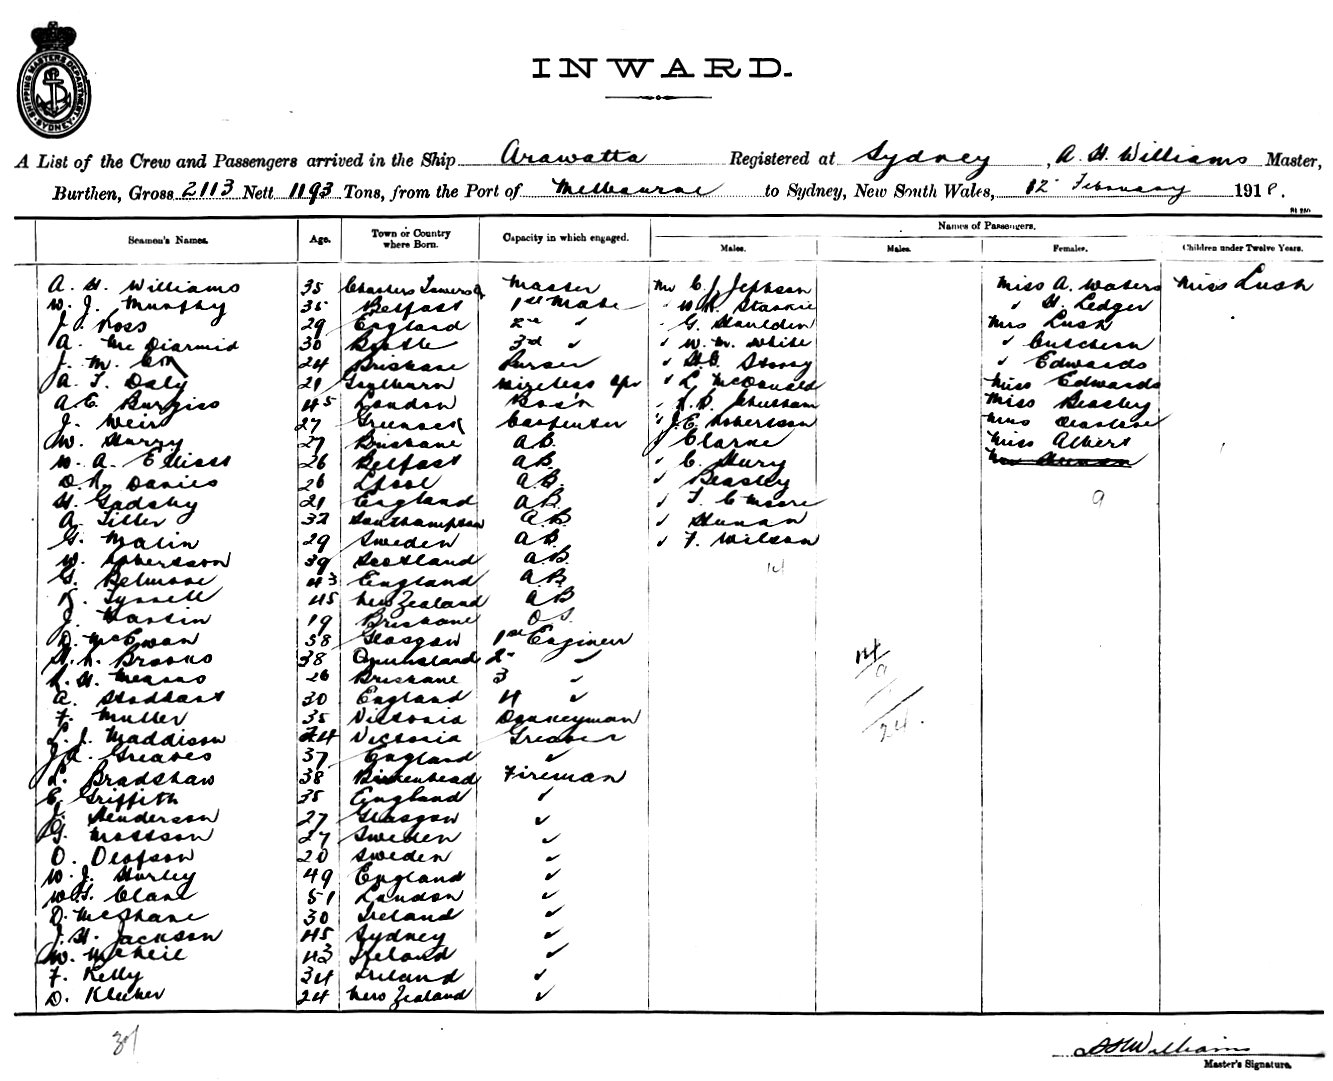 SHIPPING MASTERS DEPARTMENT SYDNEY
INWARD.
A List of the Crew and Passengers arrived in the Ship Arawatta Registered at Sydney, A. H. Williams Master,
Burthen, Gross 2113 Nett 1193 Tons, from the Port of Melbourne to Sydney, New South Wales, 12 February 1918.
Seamen's Names. Age. Town or Country where Born. Capacity in which engaged. Names of Passengers.
Males. Males. Females. Children under Twelve Years.
A. H. Williams 35 Charters Towers Q Master Mr C. J. Jephson Miss A. Waters Miss Lush
W. J. Murphy 35 Belfast 1st Mate " W. R. Starkie " H. Ledger
J. Ross 29 England 2nd " " G. Houlden Mrs Lush
A. McDiarmid 30 Bootle 3rd " " W. M. White "
J. M. 24 Brisbane Purser " Edwards
A. T. Daly 21 Goulburn Wireless Opr " L. McDonald Miss Edwards
A. E. Burgiss 45 London Bos'n " Miss Beasley
J. Weir 27 Greenock Carpenter " J. E. Robertson Miss
W. Harry 27 Brisbane A.B. " Clarke Miss Albert
W. A. Elliott 26 Belfast A.B. " C. Hury
D. R. Davies 26 L'pool A.B. " Beasley
H. Gadsby 21 England A.B. " T. C. Moore 9
A. Tiller 32 Southampton A.B. " Hunan
G. Malin 29 Sweden A.B. " F. Wilson
W. Robertson 39 Scotland A.B. 14
G. Belmore 43 England A.B.
R. Tyrrell 45 New Zealand A.B
J. Martin 19 Brisbane O.S.
D. McEwan 38 Glasgow 1st Engineer
H. N. Brooks 38 Queensland 2nd " 14
L. H. Mearns 26 Brisbane 3 " 9
A. Stoddart 30 England 4 " 1
F. Muller 35 Victoria Donkeyman 24.
L. J. Maddison 24 Victoria Greaser
J. A. Greaves 37 England "
L. Bradshaw 38 Birkenhead Fireman
E. Griffith 35 England "
J. Henderson 27 Glasgow "
G. Mattson 27 Sweden "
O. Olofson 20 Sweden "
W. J. Hurley 49 England "
W. G. Clare 51 London "
D. McShane 30 Ireland "
J. H. Jackson 45 Sydney "
W. McNeil 43 Ireland "
F. Kelly 34 Ireland "
D. 24 New Zealand "
37
A H Williams
Master's Signature.